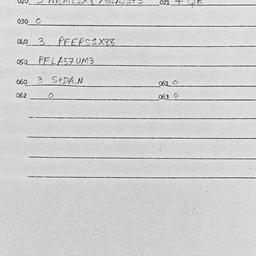 030 0
040 3 PFEPS1X78
050 PFLAS7UM3
060 3 S+DA.N 061 0
062 0 063 0